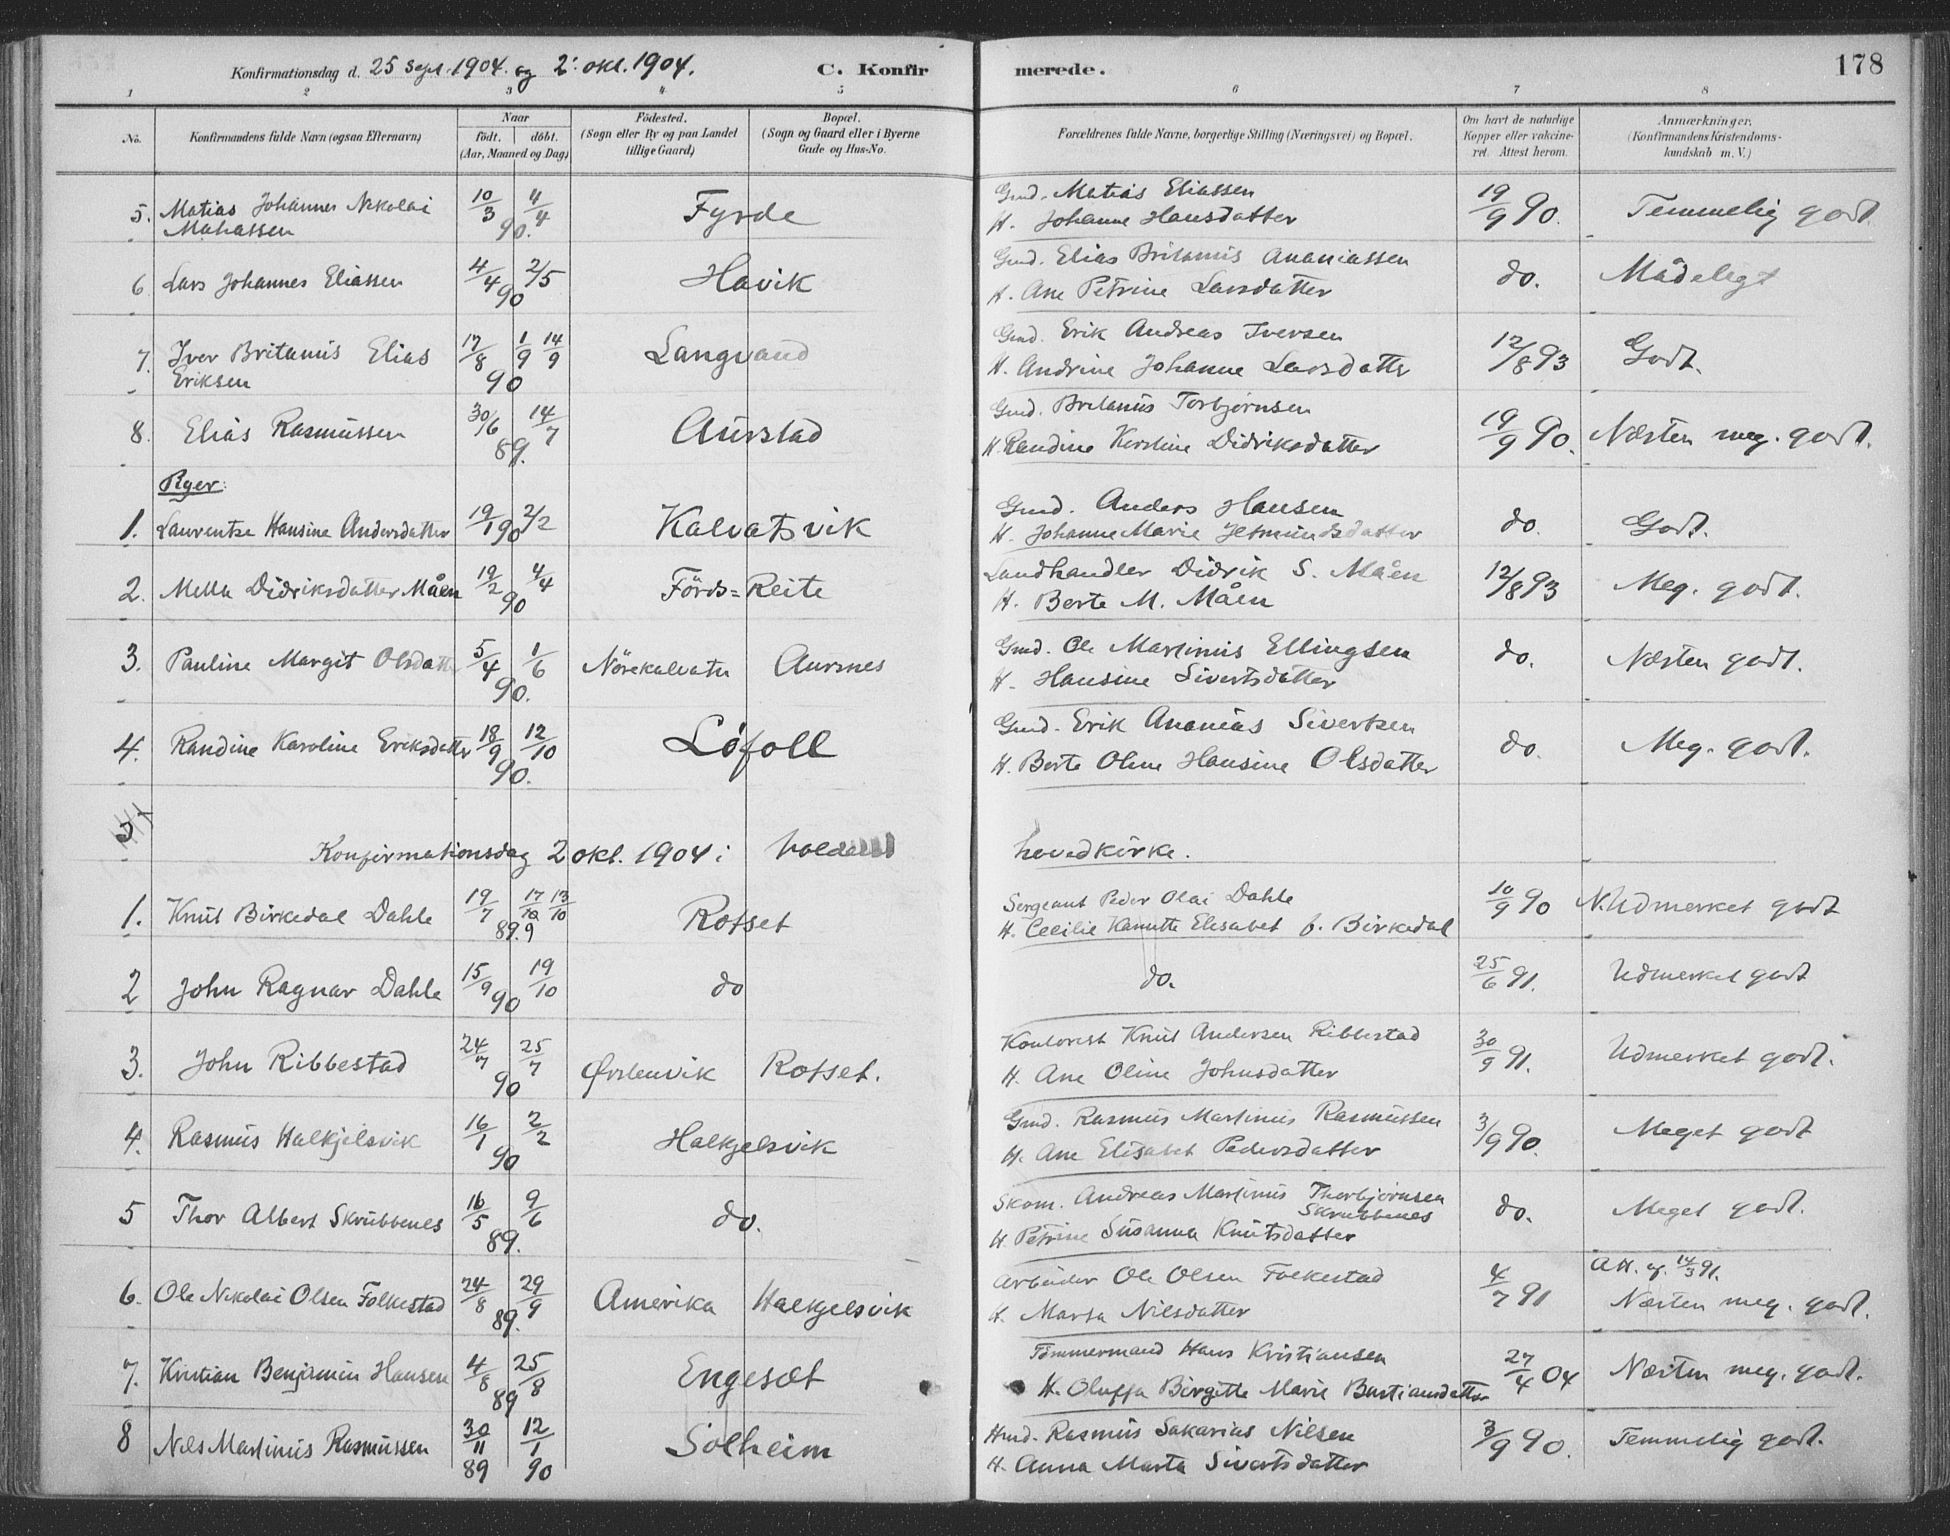 Konfirmationsdag d. 25 Sept. 1904. og 2: okt. 1904.
C. Konfirmerede.
178
1 2 3 4 5 6 7 8
No.
Konfirmandens fulde Navn (ogsaa Efternavn)
Naar
födt. döbt.
(Aar, Maaned og Dag)
Födested.
(Sogn eller By og paa Landet
tillige Gaard)
Bopæl.
(Sogn og Gaard eller i Byerne
Gade og Hus-No.
Forældrenes fulde Navne, borgerlige Stilling (Næringsvei) og Bopæl.
Om havt de naturlige
Kopper eller vakcine-
ret. Attest herom.
Anmærkninger.
(Konfirmandens Kristendoms-
kundskab m. V.)
5. Matias Johannes Nikolai 10/3 4/4 90. Fyrde Gmd. Matias Eliassen 19/9 90. Temmelig godt.
Matiassen H. Johanne Hansdatter
6 Lars Johannes Eliassen 4/4 2/5 90 Havik Gmd. Elias Britanus Ananiassen do. Mådeligt
H. Ane Petrine Larsdatter
7. Iver Britanus Elias 17/8 1/9 14/9 90 Langvand Gmd. Erik Andreas Iversen 12/8 93 Godt.
Eriksen H. Andrine Johanne Larsdatter
8. Elias Rasmussen 30/6 14/7 89. Aurstad Gmd. Britanus Torbjørnsen 19/9 90. Næsten meg. godt.
H. Randine Kirstine Didriksdatter
Piger:
1. Laurentze Hansine Andersdatter 19/1 90 2/2 Kalvatsvik Gmd. Anders Hansen do. Godt.
H. Johanne Marie Jetmundsdatter
2. Mella Didriksdatter Måen 19/2 4/4 90 Förds=Reite Landhandler Didrik S. Måen 12/8 93 Meg. godt.
H. Berte M. Måen
3. Pauline Margit Olsdatter 5/4 1/6 90. Nörekalvatn Aursnes Gmd. Ole Martinus Ellingsen do. Næsten godt.
H. Hansine Sivertsdatter
4. Randine Karoline Eriksdatter 18/9 12/10 90. Løfoll Gmd. Erik Ananias Sivertsen do. Meg. godt.
H. Berte Oline Hansine Olsdatter
Konfirmationsdag 2 okt. 1904 i hovedkirke.
1. Knut Birkedal Dahle 19/7 17/10 13/10 89. 9 Rotset Sergeant Peder Olai Dahle 10/9 90 N. Udmerket godt
H. Cecilie Kanutte Elisabet f. Birkedal
2 John Ragnar Dahle 15/9 19/10 90 do do. 25/6 91. Udmerket godt
3. John Ribbestad 24/7 25/7 90 Ørstenvik Rotset. Kontorist Knut Andersen Ribbestad 30/9 91. Udmerket godt.
H. Ane Oline Johnsdatter
4. Rasmus Halkjelsvik 16/1 2/2 90 Halkjelsvik Gmd. Rasmus Martinus Rasmussen 3/9 90. Meget godt
H. Ane Elisabet Pedersdatter
5 Thor Albert Skrubbenes 16/5 9/6 89. do. Skom. Andreas Martinus Thorbjørnsen do. Meget godt.
Skrubbenes
H. Petrine Susanna Knutsdatter
6. Ole Nikolai Olsen Folkestad 24/8 29/9 89. Amerika Halkjelsvik Arbeider Ole Olsen Folkestad 4/7 91 Att. af. 14/3 91.
H. Marta Nilsdatter Næsten meg. godt.
7. Kristian Benjamin Hansen 4/8 25/8 89 Engeset Tömmermand Hans Kristiansen 27/4 04 Næsten meg. godt.
H. Oluffa Birgitte Marie Bastiansdatter
8 Nils Martinus Rasmussen 30/11 89 12/1 90 Solheim Hmd. Rasmus Sakarias Nilsen 3/9 90. Temmelig godt.
H. Anna Marta Sivertsdatter